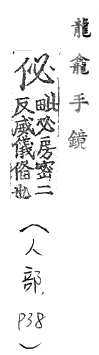 龍龕手鏡
佖
毗必房密二
反威儀俻也
(人部, P38)